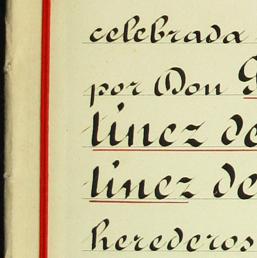 celebrada
por Don
tinez de
tinez de
herederos